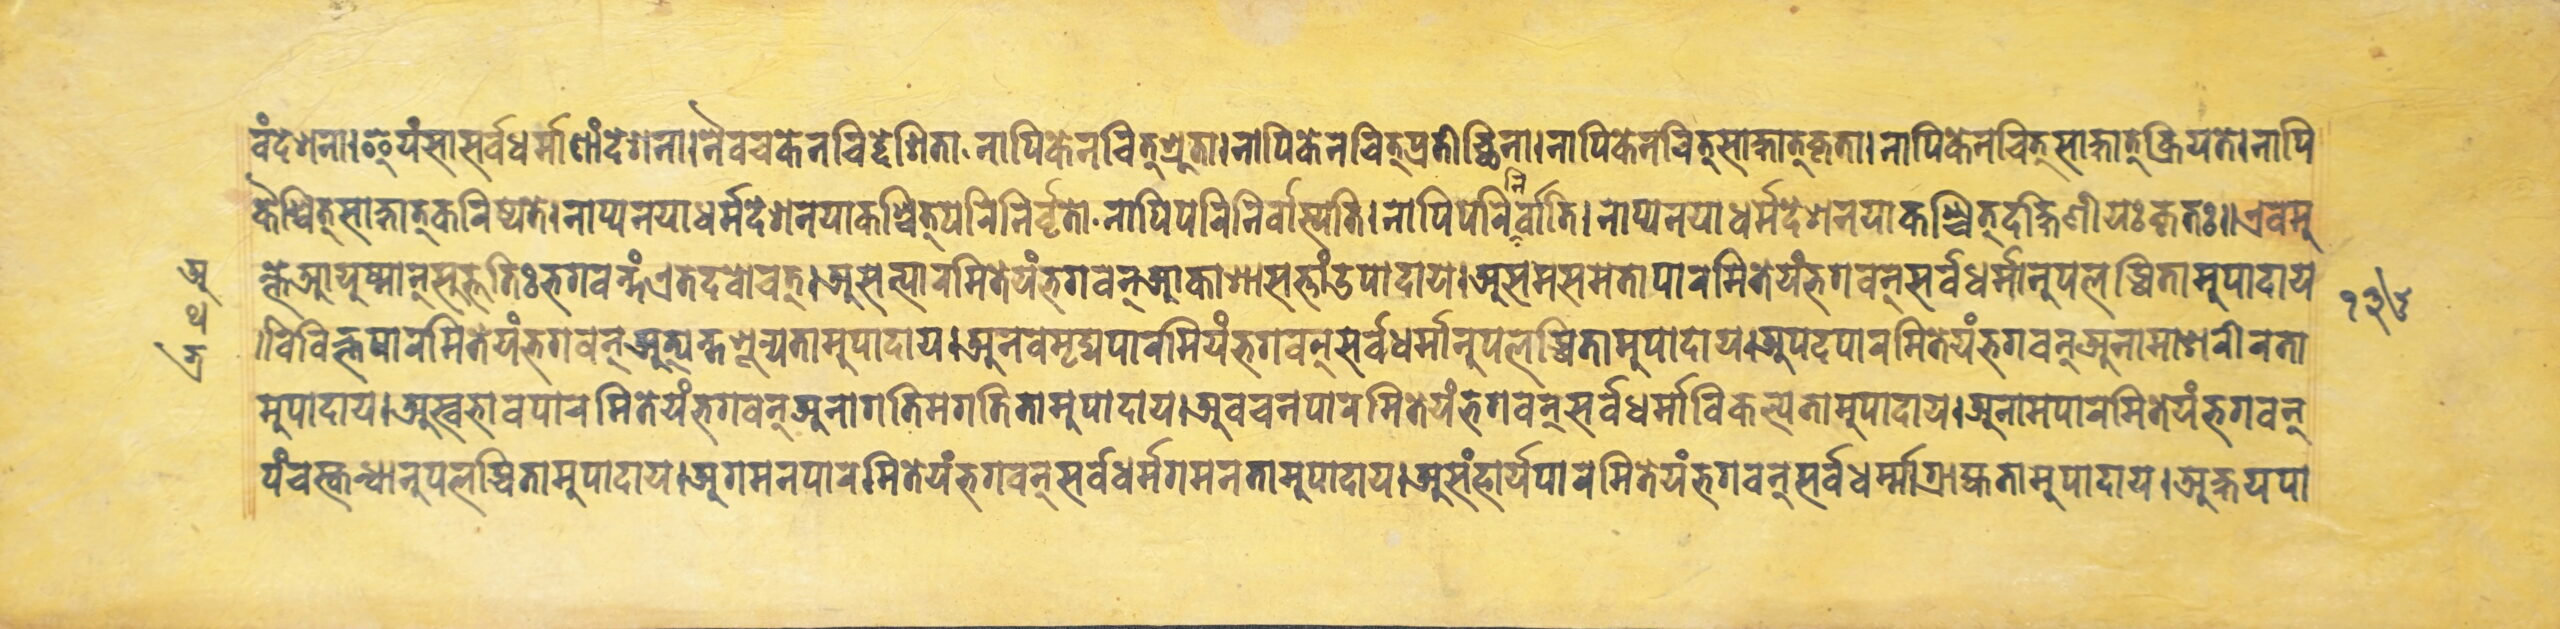 वंदेशना।इयंसासर्वधर्माणांदेशना।नैवचकेनचिद्देशिता.नापिकेनचित्श्रुता।नापिकेनचित्प्रतीच्छिना।नापिकेनचित्साक्षात्कृता।नापिकेनचित्साक्षात्क्रियते।नापि
कैश्चित्साक्षात्करिष्यते।नाप्यनयाधर्मदेशनयाकश्चित्परिनिर्वृतो.नापिपरिनिर्वास्यति।नापिपरिनिर्वाति।नाप्यनयाधर्मदेशनयाकश्चित्दक्षिणीयःकृतः॥एवमु
क्तेआयुष्मान्सुभूतिःभगवन्तंएतदवोचत्।असत्पारमितेयंभगवन्आकाशासत्तांउपादाय।असमसमतापारमितेयंभगवन्सर्वधर्मानुपलब्धितामुपादाय
।विविक्तपारमितेयंभगवन्अत्यन्तशून्यतामुपादाय।अनवमृद्यपारमियंभगवन्सर्वधर्मानुपलब्धितामुपादाय।अपदपारमितेयंभगवन्अनामाशरीरता
मुपादाय।अस्वभावपारमितेयंभगवन्अनागतिमगतितामुपादाय।अवचनपारमितेयंभगवन्सर्वधर्माविकल्पतामुपादाय।अनामपारमितेयंभगवन्
पंचस्कन्धानुपलब्धितामुपादाय।अगमनपारमितेयंभगवन्सर्वधर्मगमनतामुपादाय।असंहार्यपारमितेयंभगवन्सर्वधर्म्माग्राह्यतामुपादाय।अक्षयपा